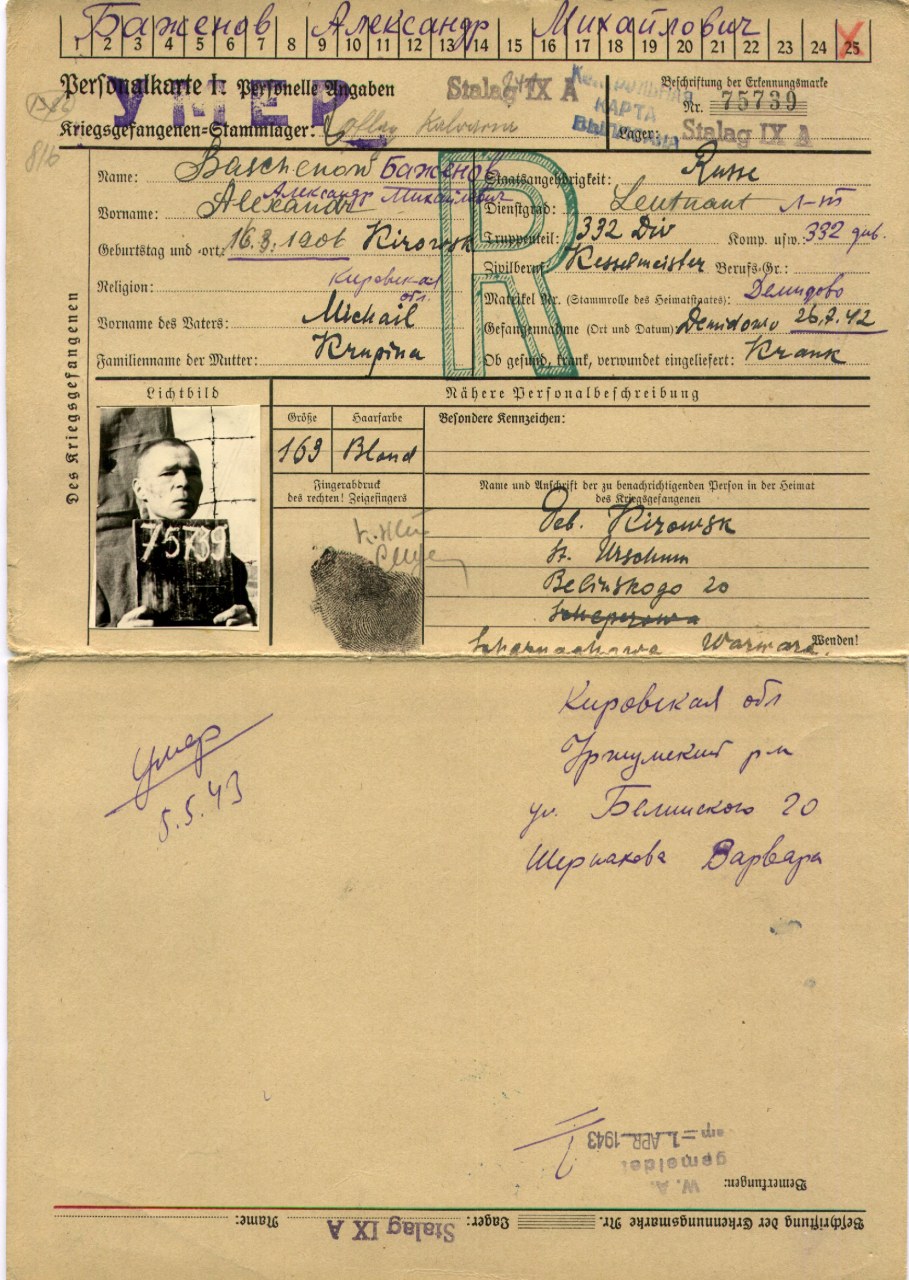 Баженов Александр Михайлович
1 2 3 4 5 6 7 8 9 10 11 12 13 14 15 16 17 18 19 20 21 22 23 24 25
Personalkarte I: Personelle Angaben
УМЕР
Stalag IX A
КОНТРОЛЬНАЯ
КАРТА
Beschriftung der Erkennungsmarke
Nr. 75739
Kriegsgefangenen-Stammlager:
Lager: Stalag IX A
816
Des Kriegsgefangenen
Name: Baschenow Баженов
Vorname: Alexandr Александр Михайлович
Geburtstag und -ort: 16.3.1906 Kirowsk
Religion: Кировская обл.
Vorname des Vaters: Michail
Familienname der Mutter: Krupina
R
Staatsangehörigkeit: Russe
Dienstgrad: Leutnant л-т
Truppenteil: 332 Div Komp. usw. 332 див.
Zivilberuf: Kesselmeister Berufs-Gr.:
Matrikel Nr. (Stammrolle des Heimatstaates): Демидово
Gefangennahme (Ort und Datum): Demidowo 26.7.42
Ob gesund, krank, verwundet eingeliefert: Krank
Lichtbild
75739
Nähere Personalbeschreibung
Größe Haarfarbe Besondere Kennzeichen:
169 Blond
Fingerabdruck
des rechten! Zeigefingers
Name und Anschrift der zu benachrichtigenden Person in der Heimat
des Kriegsgefangenen
Geb. Kirowsk
St. Urschum
Belinskogo 20
Warwara.
Wenden!
Кировская обл
Уржумский р-н
ул. Белинского 20
Шернакова Варвара
умер
5.5.43
Bemerkungen:
W. A.
gemeldet
am = 1. APR. 1943
Beschriftung der Erkennungsmarke Nr.
Lager: Stalag IX A
Name: